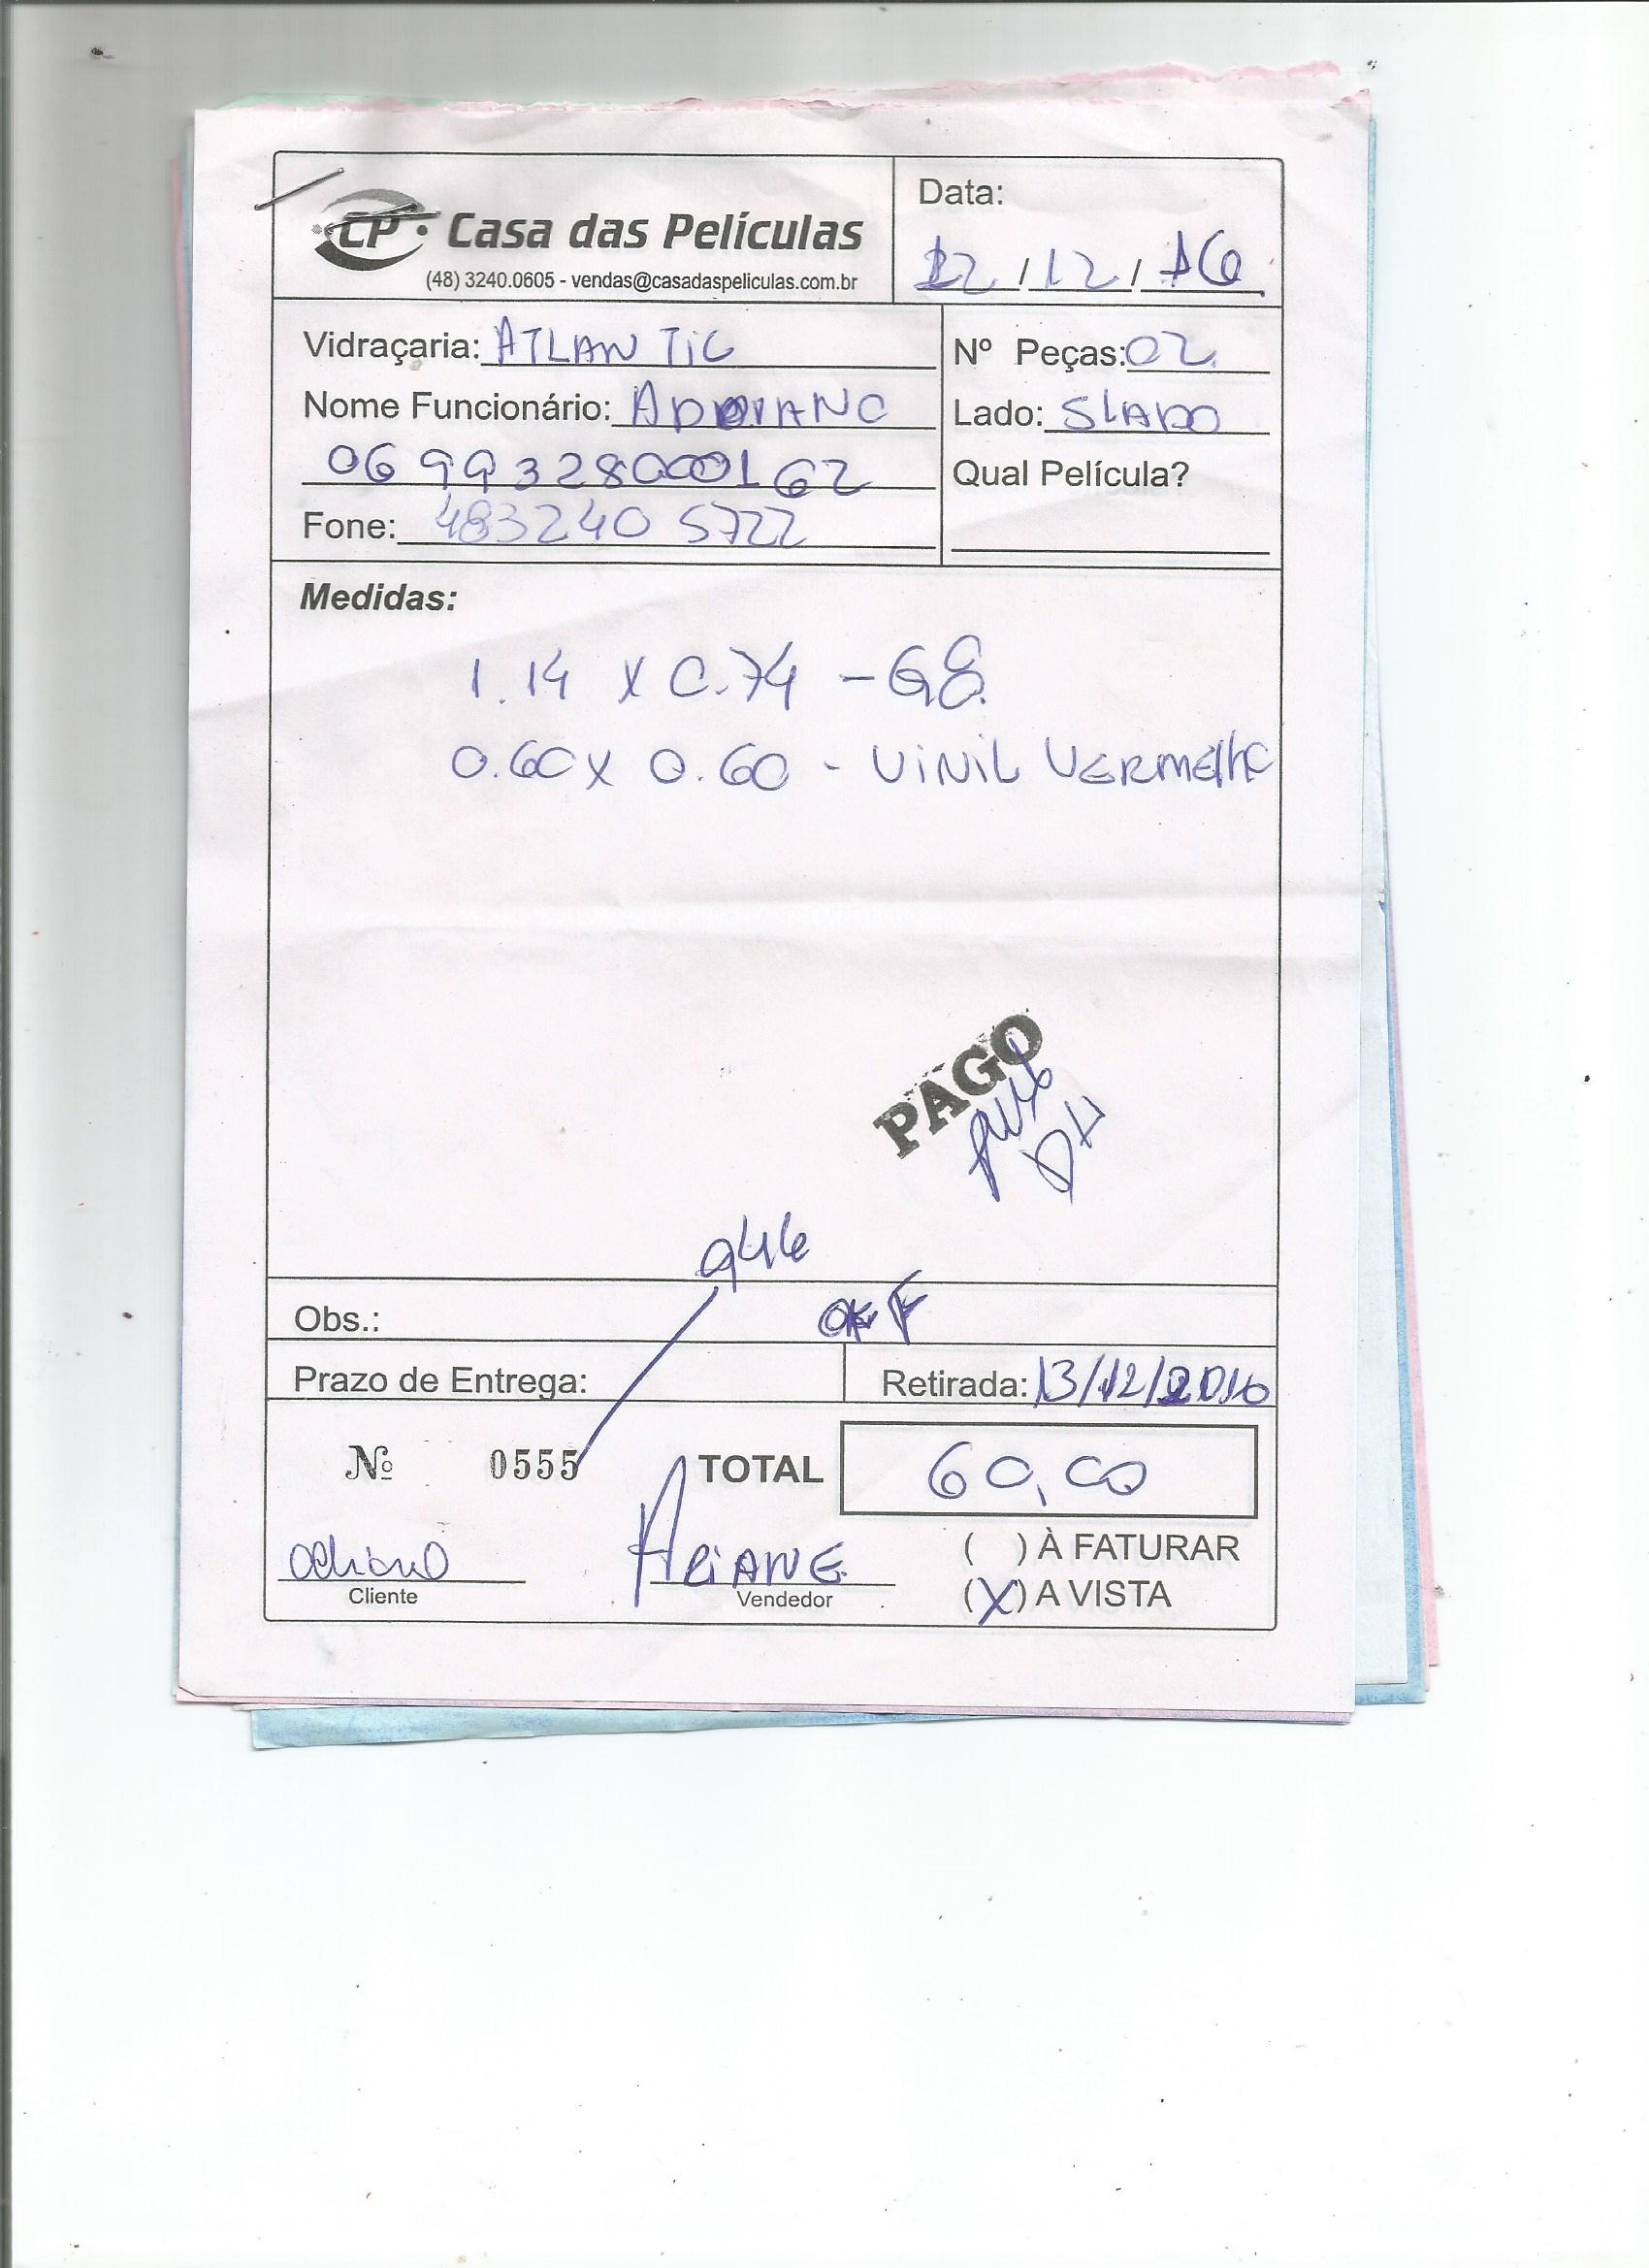 CP Casa das Películas
(48) 3240.0605 - vendas@casadaspeliculas.com.br
Data:
12/12/16
Vidraçaria: ATLANTIC
Nº Peças: 02
Nome Funcionário: ADRIANO
Lado: SLADO
06993280000162
Qual Película?
Fone: 483240 5722
Medidas:
1.14 x 0.74 - G8
0.60 x 0.60 - VINIL VERMELHO
PAGO
946
Obs.:
Prazo de Entrega:
Retirada: 13/12/2016
Nº 0555
TOTAL 60,00
( ) À FATURAR
adriano
ARIANE
(X) A VISTA
Cliente
Vendedor